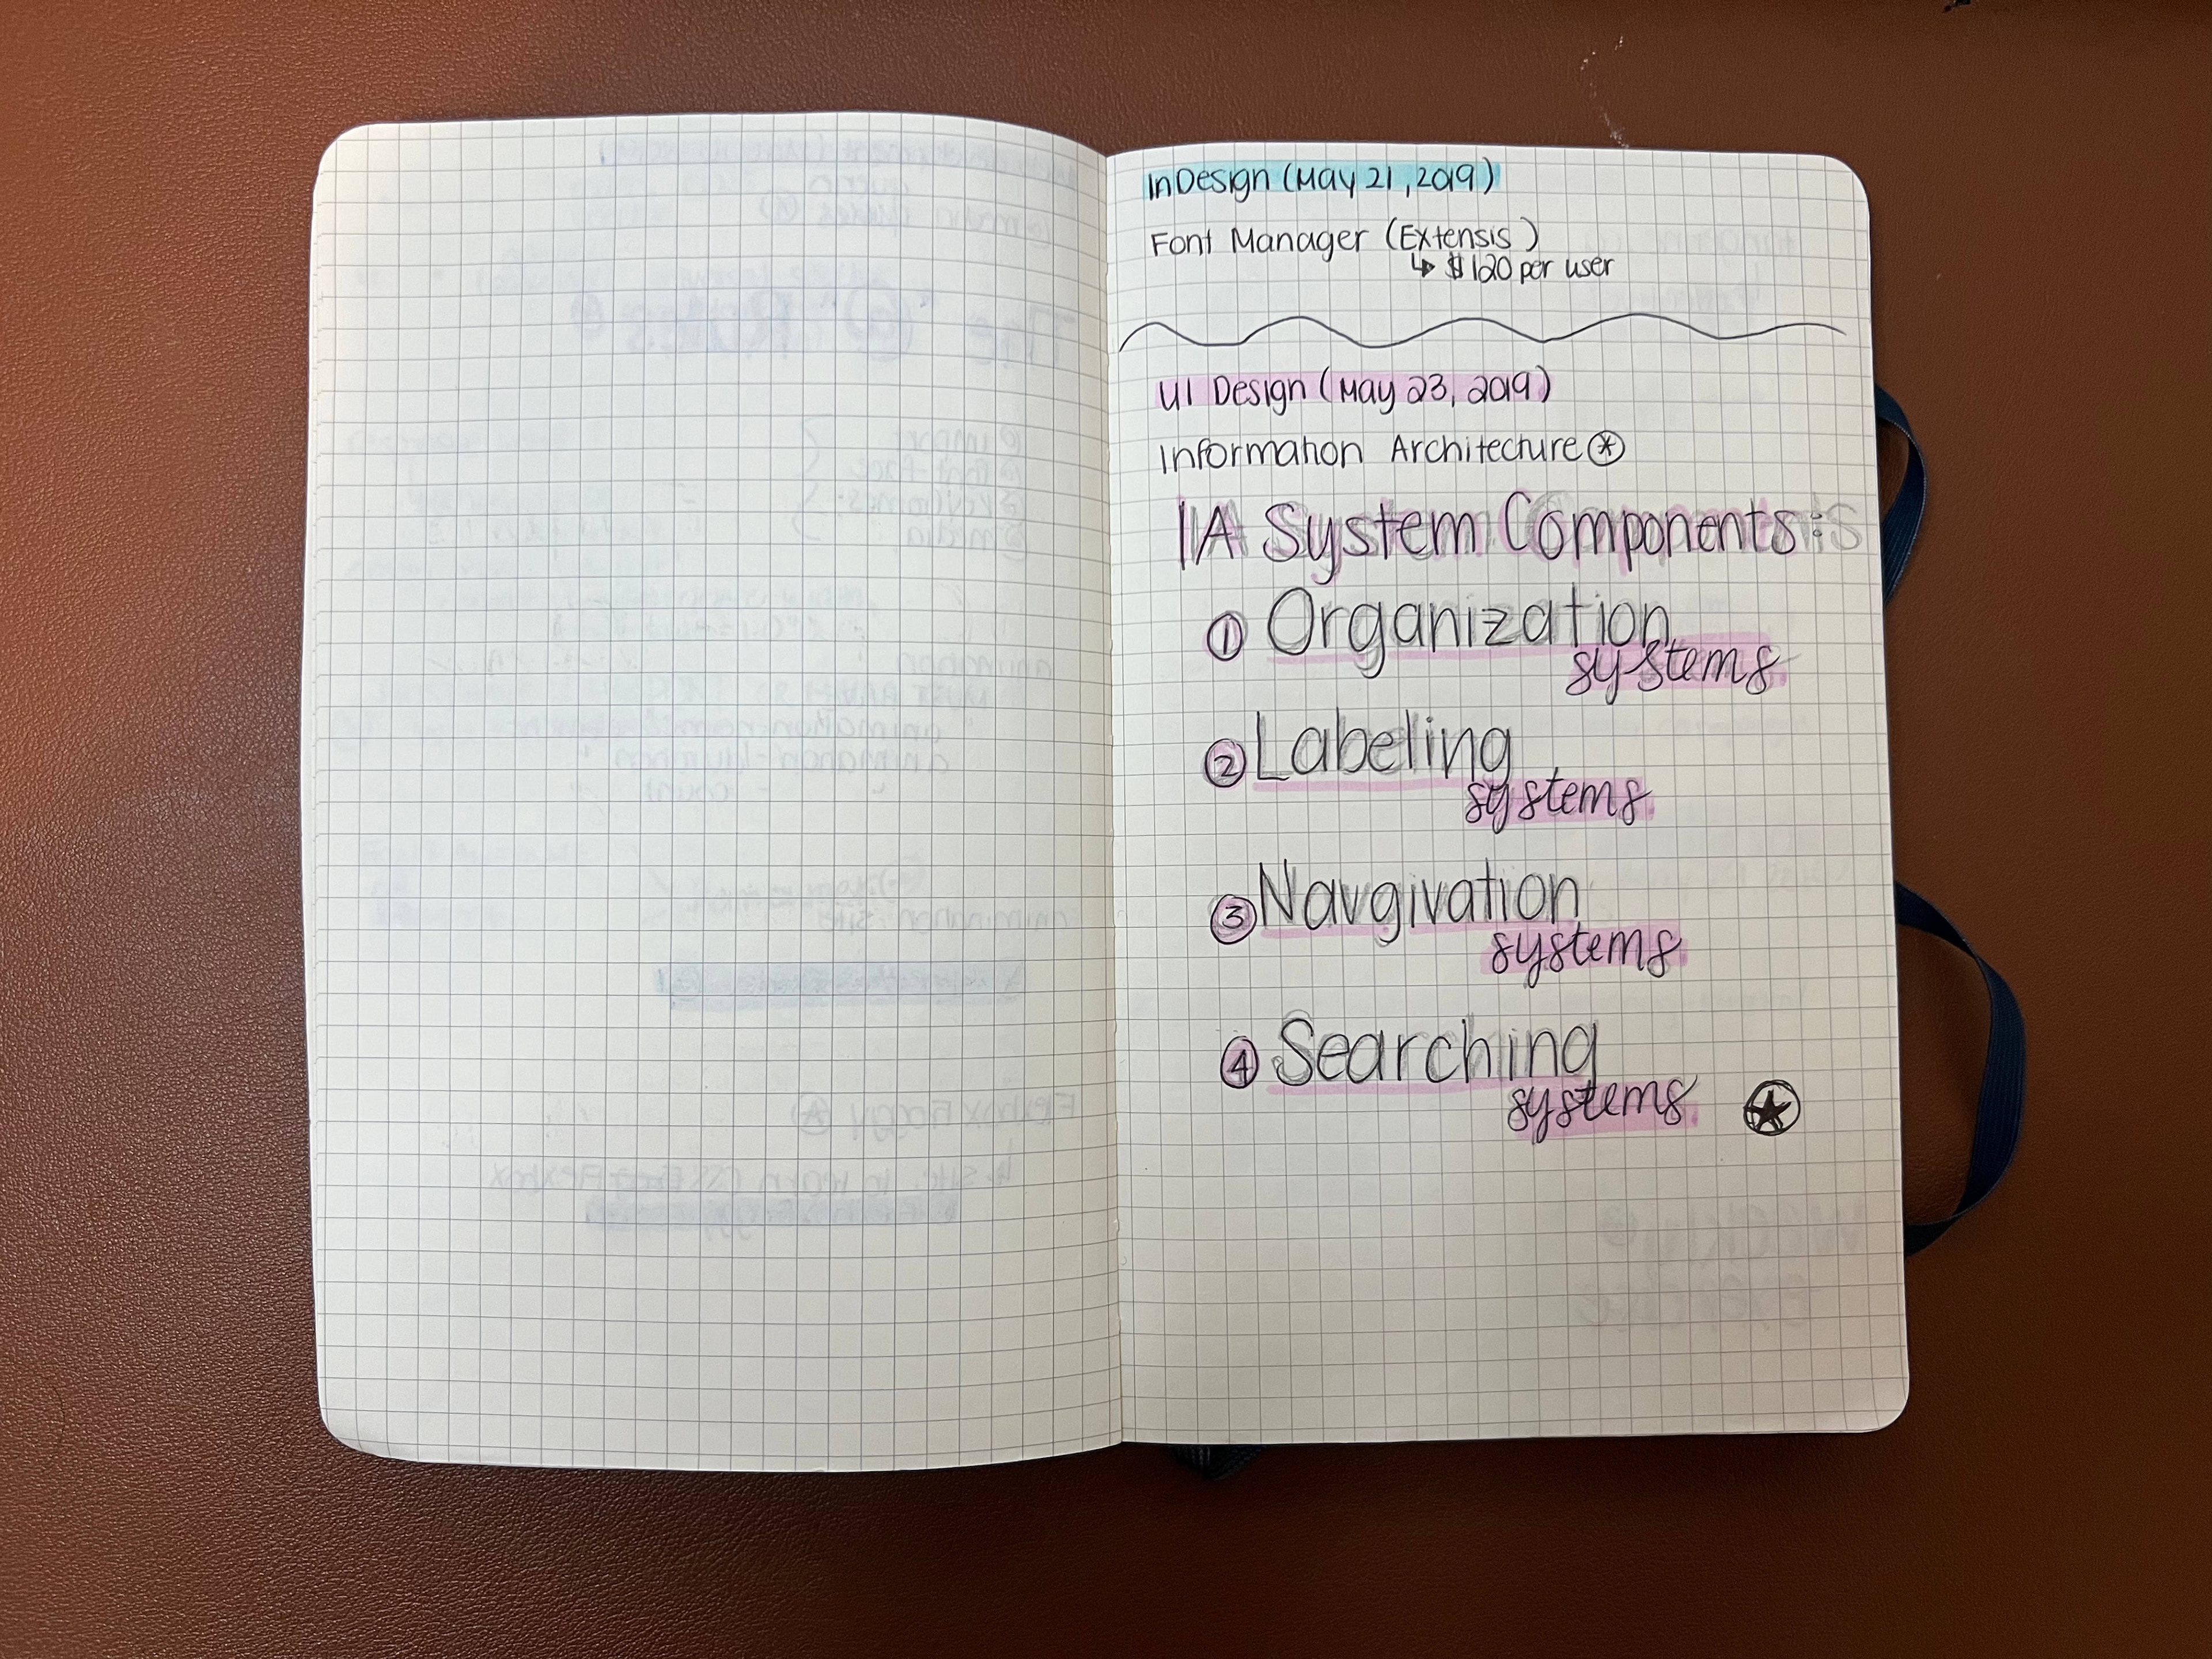 InDesign (May 21, 2019)
Font Manager (Extensis)
↳ $120 per user
UI Design (May 23, 2019)
Information Architecture
IA System Components:
① Organization
systems
② Labeling
systems
③ Navgivation
systems
④ Searching
systems